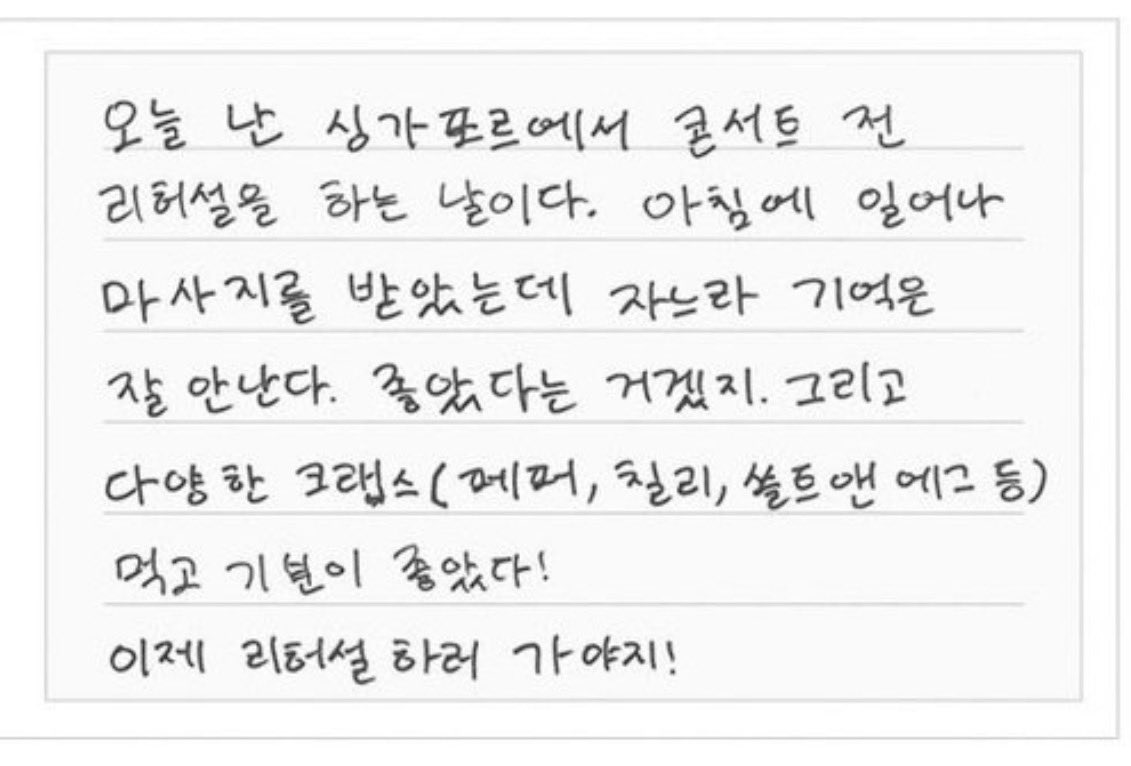 오늘 난 싱가포르에서 콘서트 전
리허설을 하는 날이다. 아침에 일어나
마사지를 받았는데 자느라 기억은
잘 안난다. 좋았다는 거겠지. 그리고
다양한 크랩스(페퍼, 칠리, 쏠트앤 에그 등)
먹고 기분이 좋았다!
이제 리허설 하러 가야지!